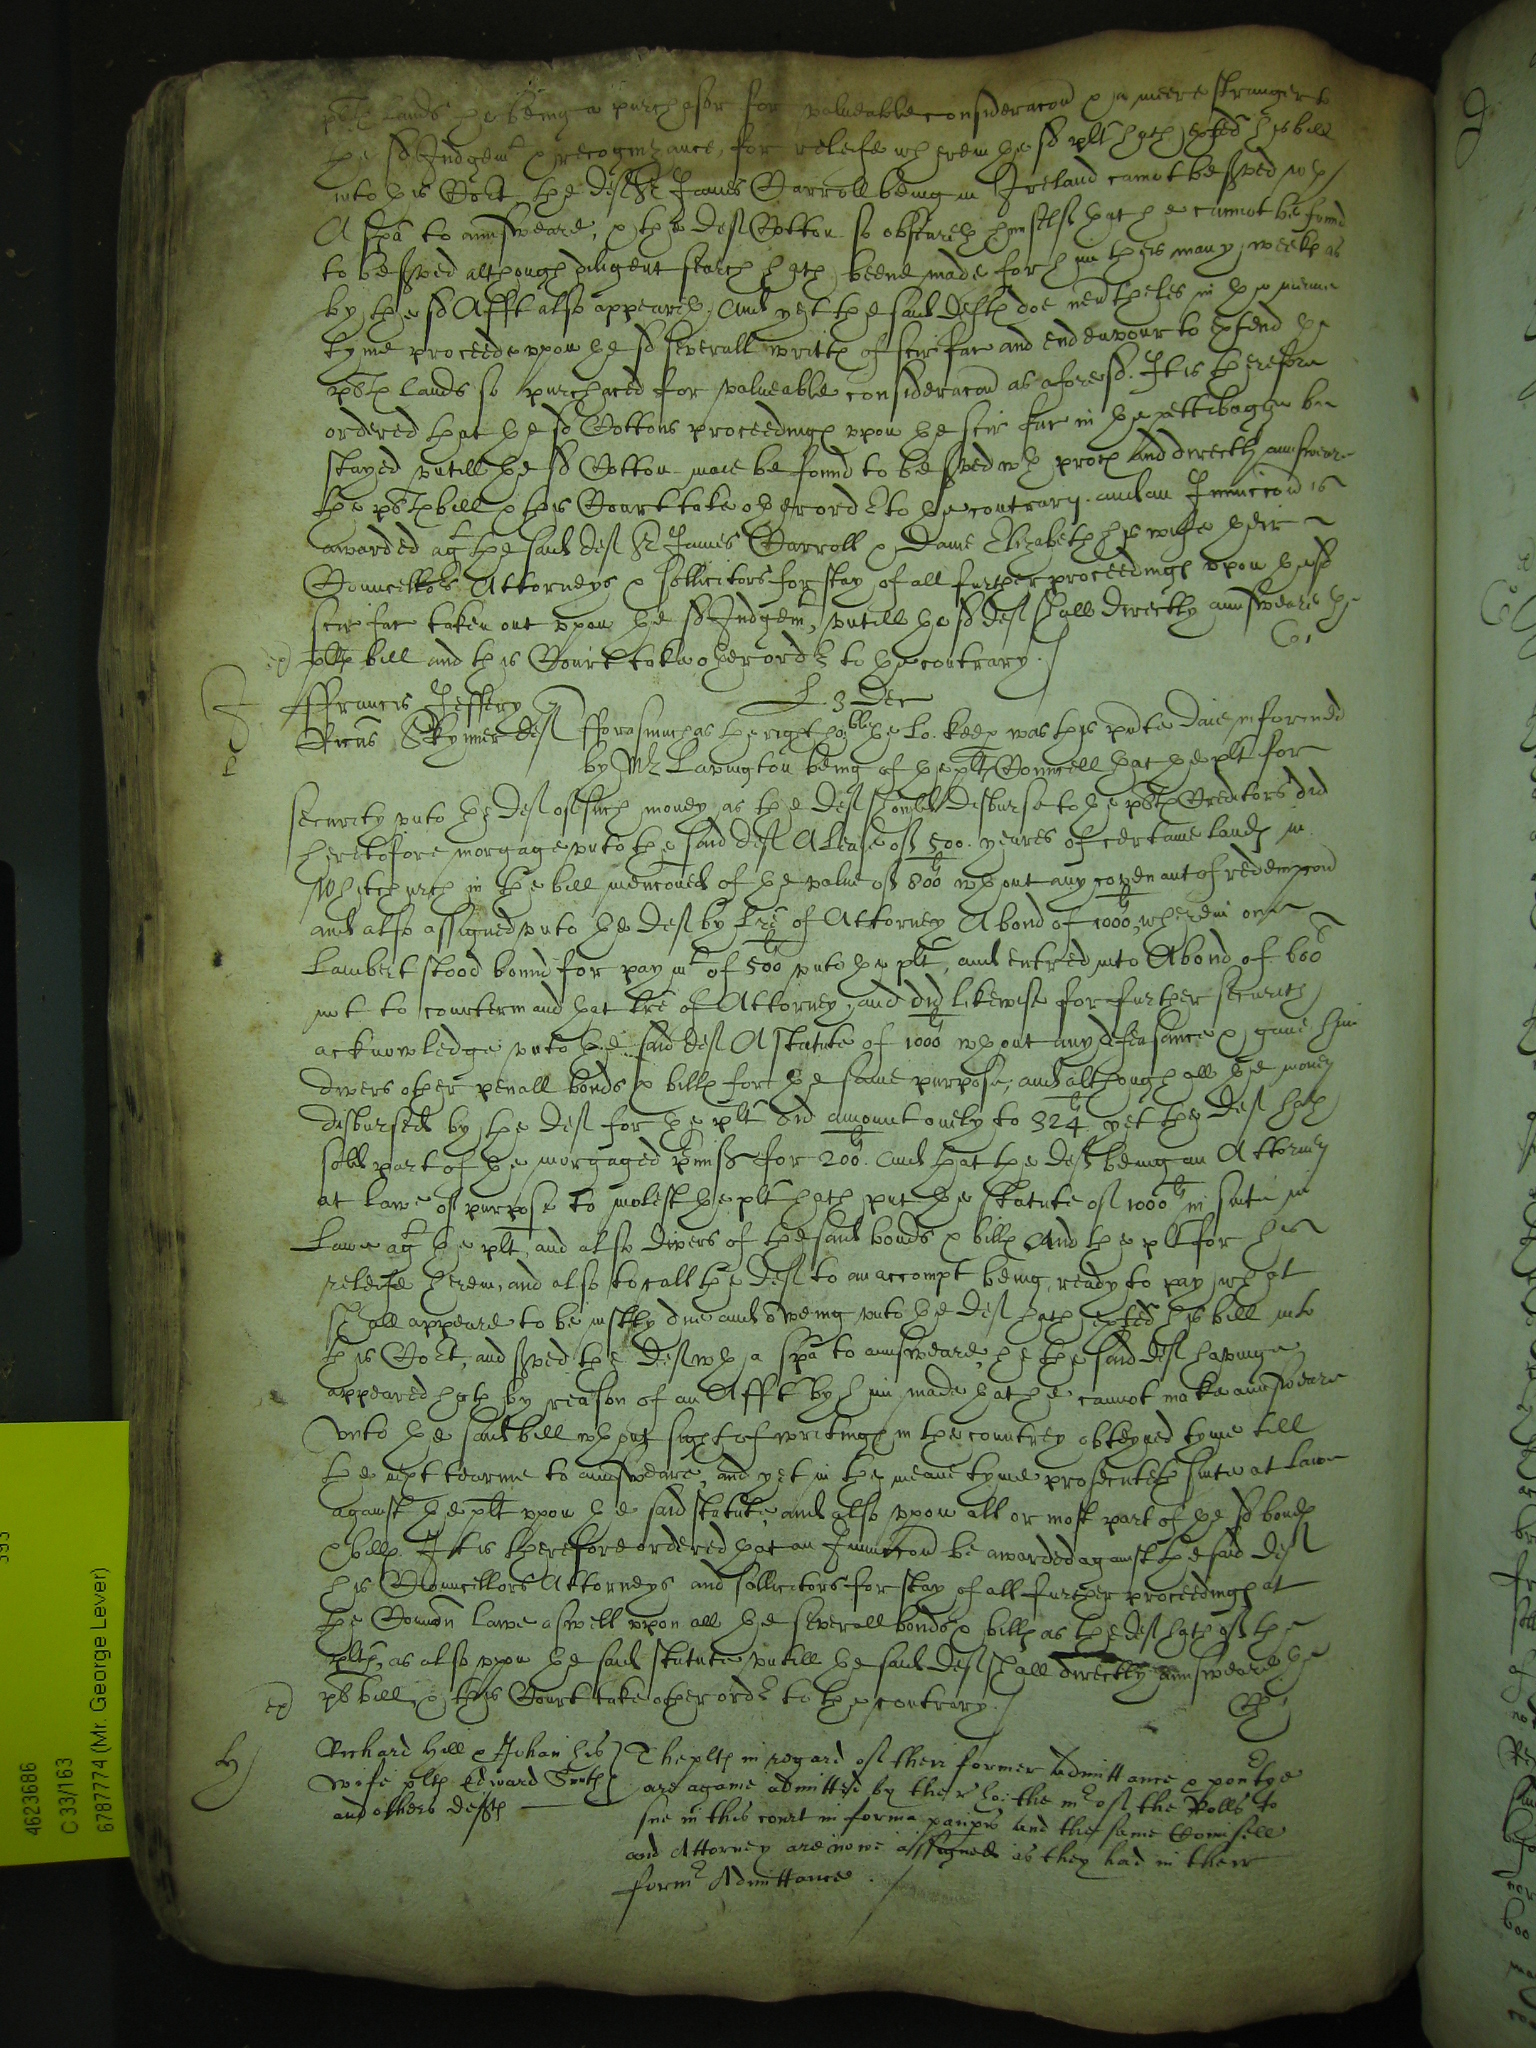 plts lands he being a purchaser for valueable consideracon & a meere stranger to
the sd Judgemt & recognizance, for releife wherein the sd plt hath exhted his bill
into this Cort, the deft Sr James Carroll being in Ireland cannot be served wth
A spa to annsweare, & the deft Cotton so obscureth himself that he cannot be found
to be served although diligent search hath beene made for him this many weeks as
by the sd Afft also appeareth, And yet the said defts doe nevertheles in the meane
tyme proceede uppon the sd severall writts of scir fac and endeavour to extend the
plts lands so purchaced for valueable consideracon as aforesd. It is therefore
ordered that the sd Cottons proceedings uppon the scir fac in the pettibagge be
stayed untill the sd Cotton maie be found to be served wth proces and directly annsweare
the plts bill & this Court take other ordr to the contrary. and an Iniunccon is
awarded agt the said deft Sr James Carroll & Dame Elizabeth his wife their
Councellors Attorneys & sollicitors for stay of all further proceedings upon the sd
scir fac taken out upon the sd Judgemt, untill the sd deft shall directly annsweare the
plts bill and this Court take other ordr to the contrary.
L. 3 Dec
ffrancis Jeffery
Ricus Skynner deft
fforasmuch as the right hoble the Lo. keep was this pnte daie informed
by Mr Lavington being of the plts Councell that the plt for
security unto the deft of such money as the deft should disburse to the plts Creditors did
heretofore morgage unto the said deft A lease of 500 yeares of certaine lands in
Whitchurch in the bill menconed of the value of 800li wthout any covenant of redempcon
and also assigned unto the deft by Lre of Attorney A bond of 1000li wherein one
Lambert stood bound for paymt of 500li unto the plt, and entred into A bond of 600li
not to countermand that Lre of Attorney, and did likewise for further security
acknowledge unto the said deft A statute of 1000li wthout any defeasance & gave him
divers other penall bonds & bills for the same purpose, and although all the money
disbursed by the deft for the plt did amount onely to 324li yet the deft hath
sold part of the morgaged pmiss for 200li. And that the deft being an Attorney
at Lawe of purpose to molest the plt hath put the statute of 1000li in suite in
Lawe agt the plt, and also divers of the said bonds & bills And the plt for his
releife herein, and also to call the deft to an accompt being ready to pay what
shall appeare to be iustly due and oweing unto the deft hath exhted his bill into
this Cort, and served the deft wth a spa to annsweare, the said deft having
appeared hath by reason of an Afft by him made that he cannot make annsweare
unto the said bill wthout sight of writings in the countrey obteyned tyme till
the next tearme to annsweare, and yet in the meane tyme prosecuteth suite at Lawe
against the plt uppon the said statute, and also uppon all or most part of the sd bonds
& bills. It is therefore ordered that an Iniunccon be awarded against the said deft
his Councellors Attorneys and sollicitors for stay of all further proceedings at
the Comon Lawe aswell uppon all the severall bonds & bills as the deft hath of the
plts, as also uppon the said statute untill the said deft shall directly annsweare the
plts bill & this Court take other ordr to the contrary.
H
Richard Hill & Johan his
wife plts Edward Smith
and others defts
The plts in regard of their former Admittance & povrtye
are againe admitted by the right ho: the mr of the Rolls to
sue in this court in forma paupis and the same Counsell
and Attorney are nowe assigned as they had in their
formr Admittance.
393
4623686
C 33/163
6787774 (Mr. George Lever)